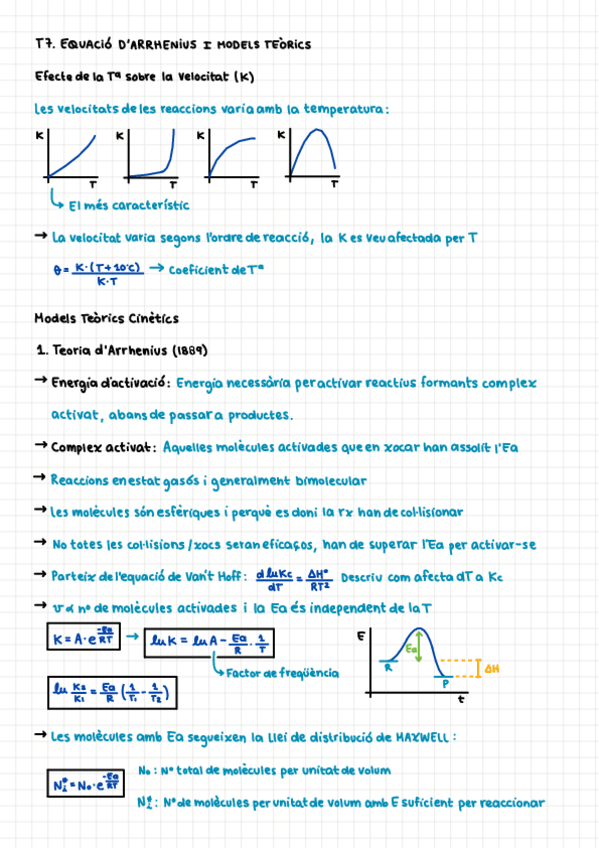 T7. EQUACIÓ D'ARRHENIUS I MODELS TEÒRICS
Efecte de la Tª sobre la velocitat (K)
Les velocitats de les reaccions varia amb la temperatura:
K K K K
T T T T
El més característic
→ La velocitat varia segons l'ordre de reacció, la K es veu afectada per T
θ = K·(T+10ºC) / K·T → Coeficient de Tª
Models Teòrics Cinètics
1. Teoria d'Arrhenius (1889)
→ Energia d'activació: Energia necessària per activar reactius formants complex
activat, abans de passar a productes.
→ Complex activat: Aquelles molècules activades que en xocar han assolit l'Ea
→ Reaccions en estat gasós i generalment bimolecular
→ Les molècules són esfèriques i perquè es doni la rx han de col·lisionar
→ No totes les col·lisions /xocs seran eficaços, han de superar l'Ea per activar-se
→ Parteix de l'equació de Van't Hoff: d lu Kc / dT = ΔHº / RT² Descriu com afecta dT a Kc
→ v α nº de molècules activades i la Ea és independent de la T
K = A·e^(-Ea/RT) → lu K = lu A - Ea/R · 1/T
Factor de freqüència
lu K2/K1 = Ea/R (1/T1 - 1/T2)
E R Ea P ΔH t
→ Les molècules amb Ea segueixen la Llei de distribució de MAXWELL:
Ni* = N₀·e^(-Ea/RT)
N₀: Nº total de molècules per unitat de volum
Ni*: Nº de molècules per unitat de volum amb E suficient per reaccionar